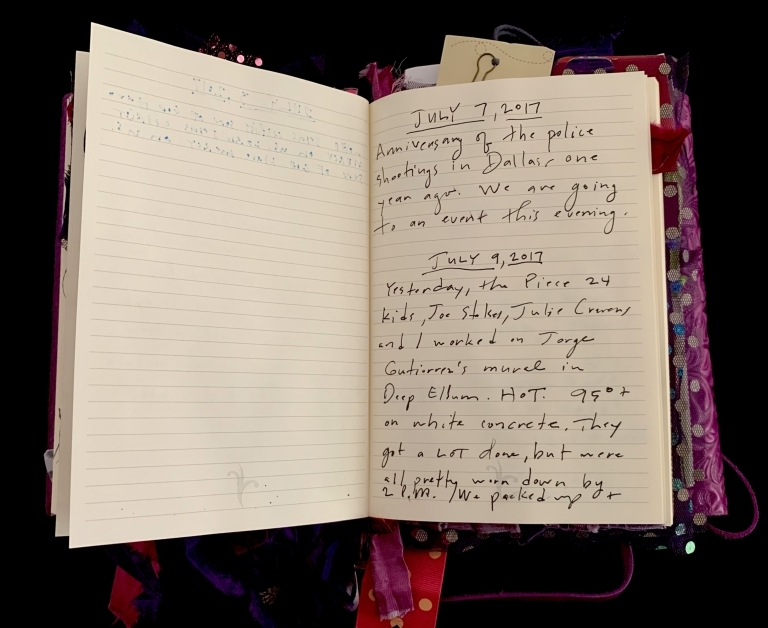 JULY 7, 2017
Anniversary of the police
shootings in Dallas, one
year ago. We are going
to an event this evening.
JULY 9, 2017
Yesterday, the Piece 24
kids, Joe Stokes, Julie Cravens
and I worked on Jorge
Gutierrez's mural in
Deep Ellum. HOT. 95°+
on white concrete. They
got a LOT done, but were
all pretty worn down by
2 P.M. We packed up +